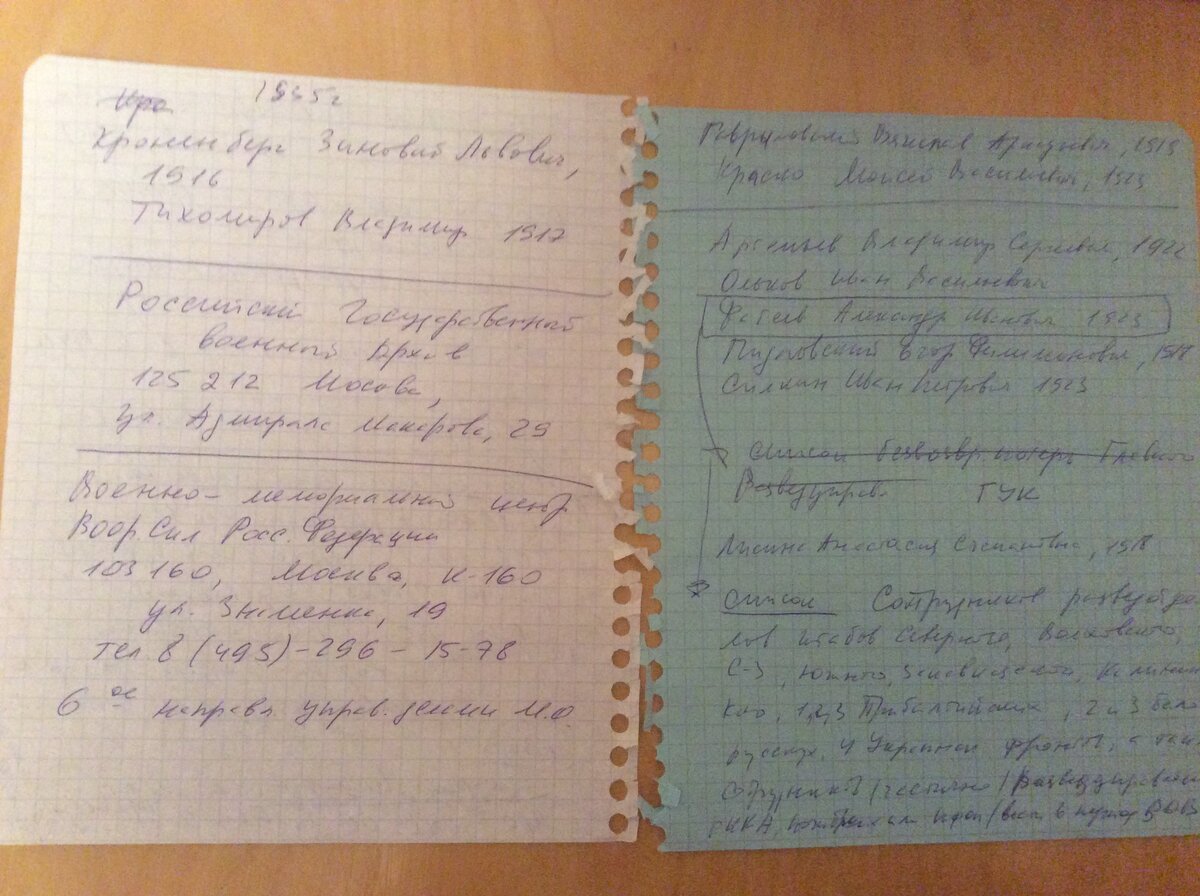 1935г
Кроненберг Зиновий Львович,
1916
Тихомиров Владимир 1917
Российский Государственный
военный архив
125 212 Москва,
ул. Адмирала Макарова, 29
Военно-мемориальный центр
Воор. Сил Росс. Федерации
103 160, Москва, К-160
ул. Знаменка, 19
тел. 8 (495) - 296 - 15-78
6 ое направл. управ. делами М.О.
1919
Краско Моисей Васильевич, 1923
Арсеньев Владимир Сергеевич, 1922
Ольхов Иван Васильевич
Фатеев Александр Иванович 1923
Егор Филимонович, 1918
Силкин Иван Петрович 1923
список безвозвр. потерь Главного
Разведуправ. ГУК
Анастасия Степановна, 1918
список Сотрудников разведотде
лов штабов Северного, Волховского,
С-З, Южного, Калинин
1,2,3 Прибалтийских, 2 и 3 бело
русских, 4 Украин фронтов, а так
Разведуправлен